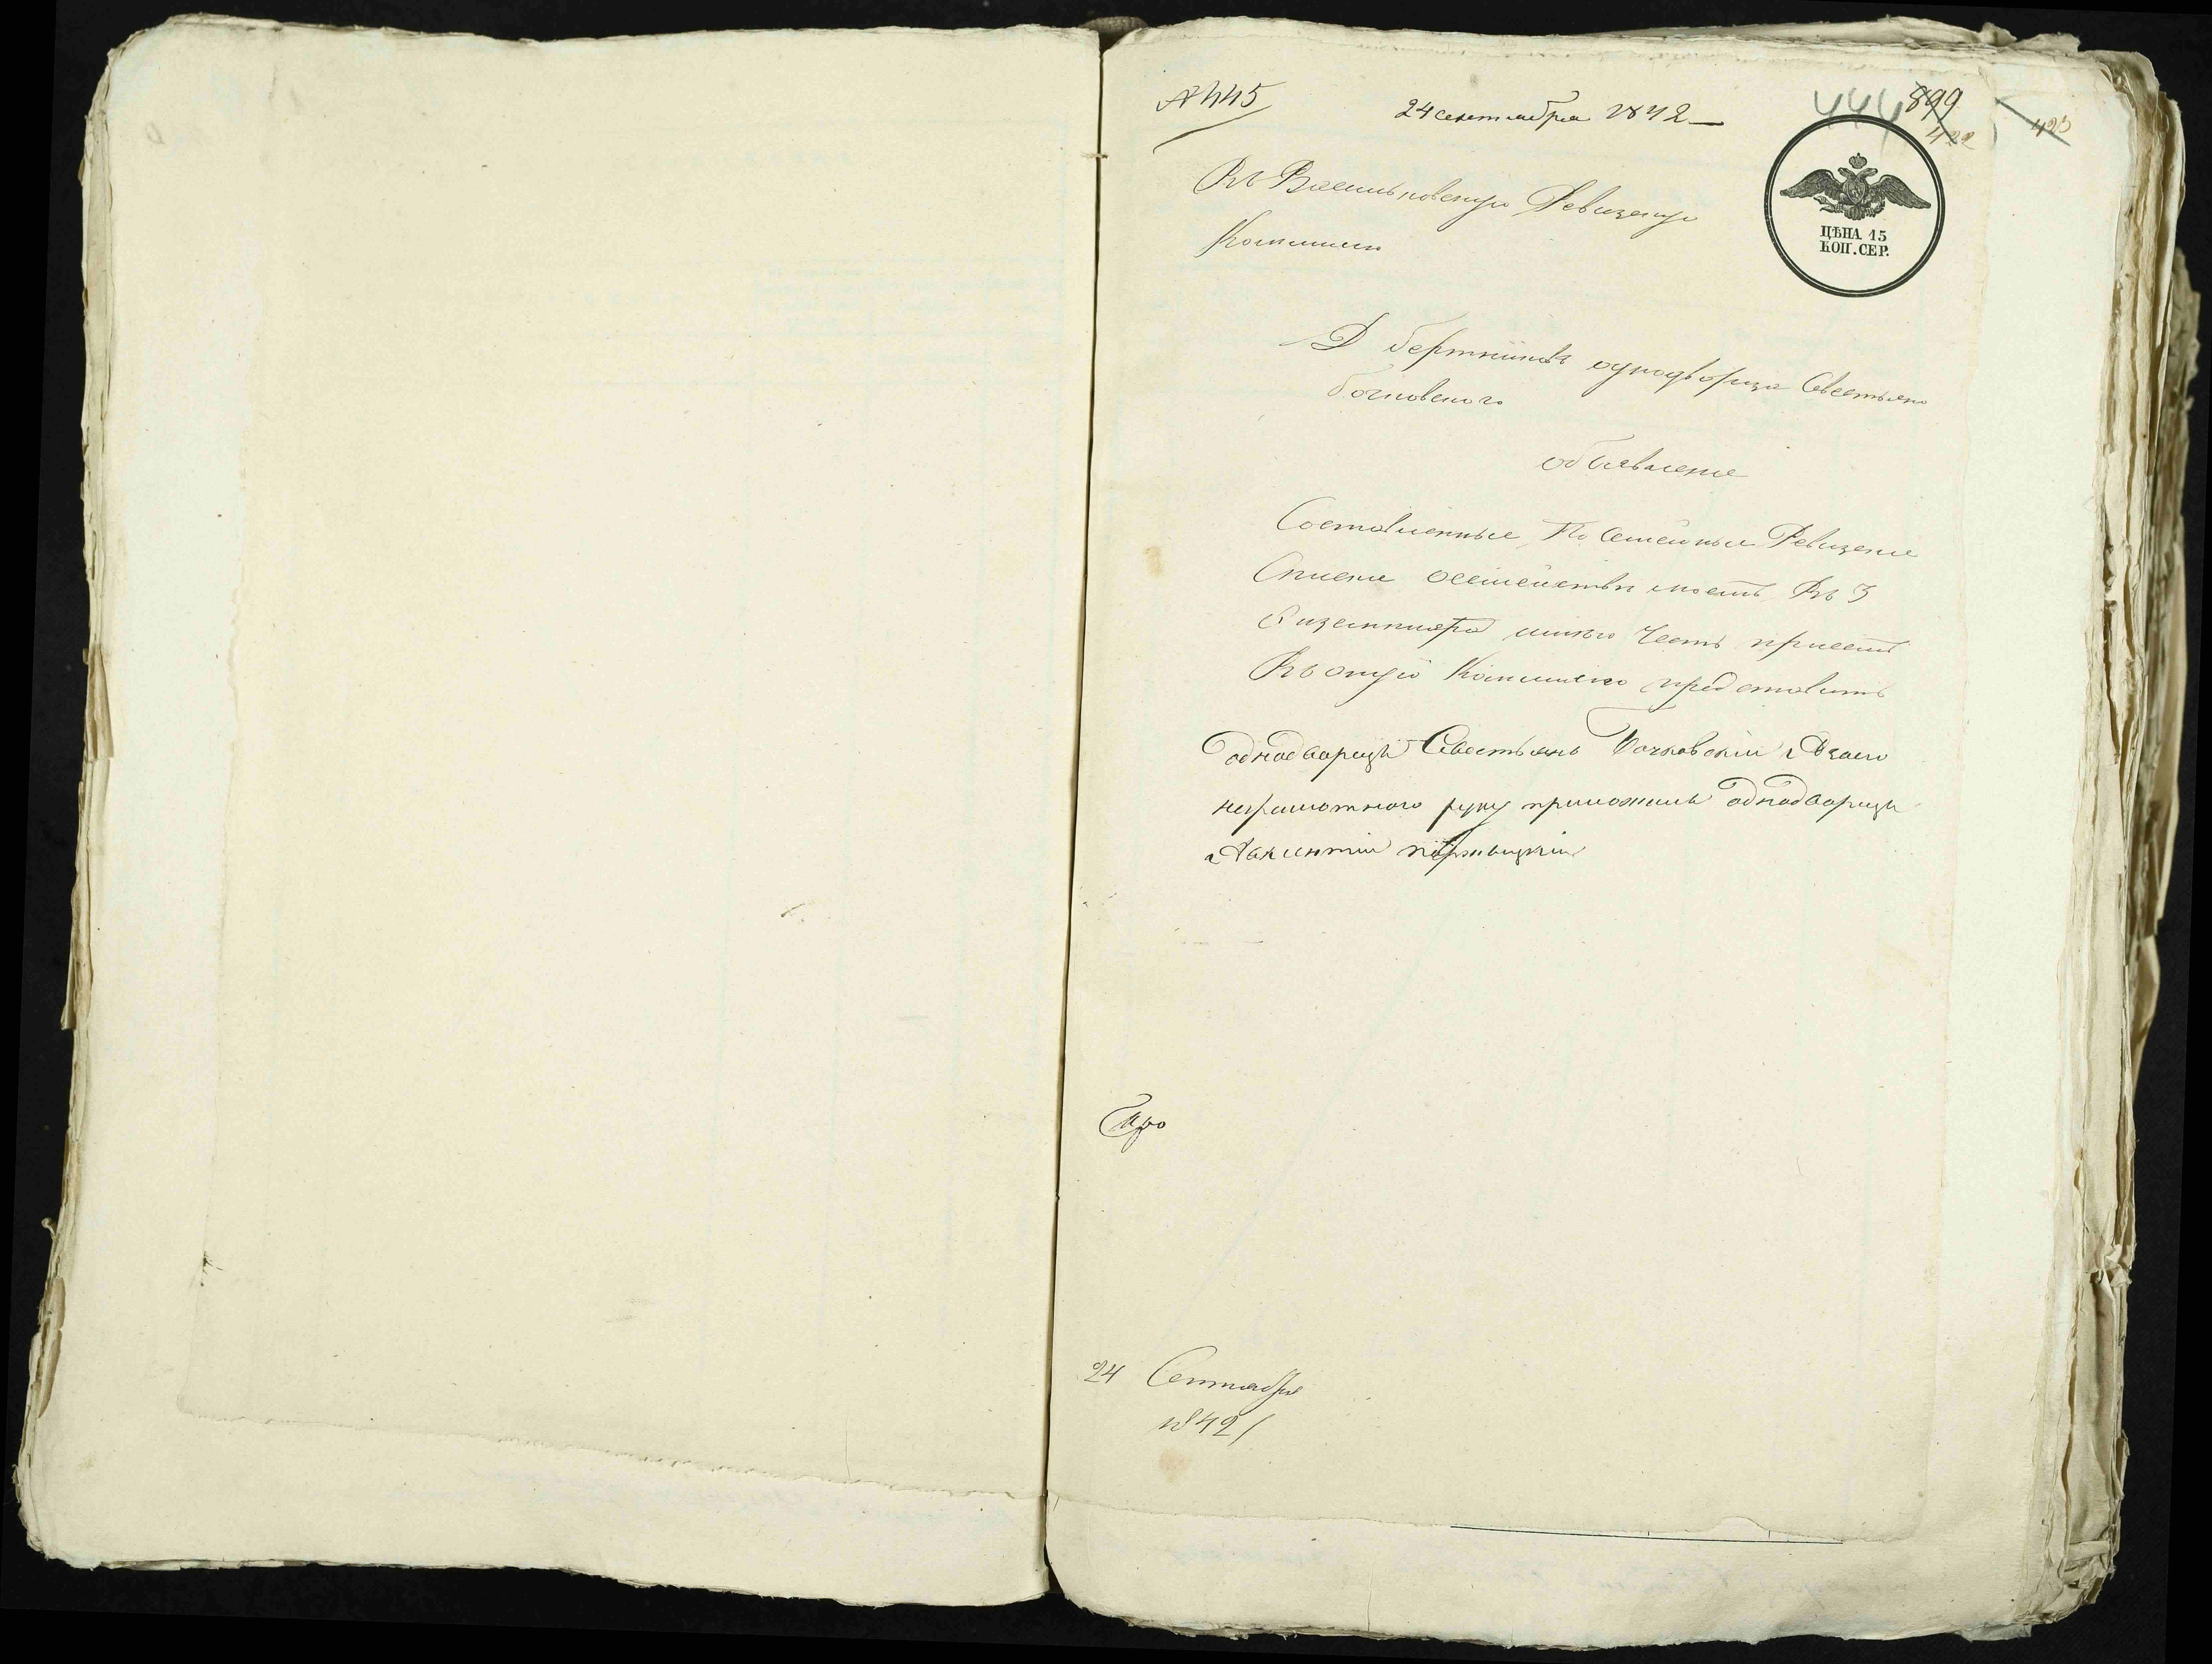 № 445
24 сентября 1842
444
899
422
423
ЦѢНА 15
КОП. СЕР.
Въ Васильковскую Ревизскую
Комисию
однодворца Севестьяна
бочковского
объявление
Составленные По Семейные Ревизские
Списки осемействи моемъ Въ 3
Киземпляра имею честь присемъ
Въ оную Комисию представить
однодворецъ Севестьянъ Бочковский Азаего
неграмотного руку приложилъ однодворецъ
24 Сентября
1842